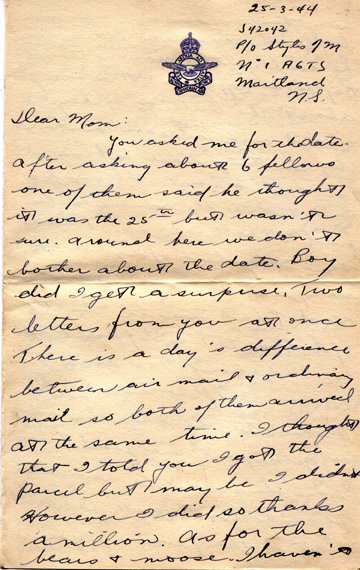 25-3-44
J42042
P/O Styles J M
Nº 1 AGTS
Maitland
N.S.
Dear Mom:
You asked me for the date.
After asking about 6 fellows
one of them said he thought
it was the 25th but wasn't
sure. Around here we don't
bother about the date. Boy
did I get a surprise. Two
letters from you at once
There is a day's difference
between air mail & ordinary
mail so both of them arrived
at the same time. I thought
that I told you I got the
parcel but may be I didn't
However I did so thanks
a million. As for the
bears & moose, I haven't